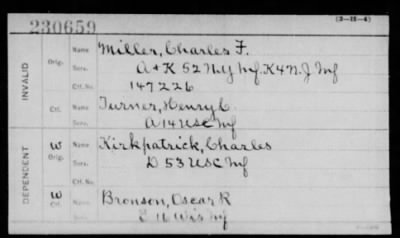 230659
(3-1H-4)
INVALID
Orig.
Name Miller, Charles F.
Serv. A+K 52 N.Y. Inf. K4 N.J. Inf
Ctf. No. 147226
Ctf.
Name Turner, Henry C.
Serv. A 14 USC Inf
DEPENDENT
W Orig.
Name Kirkpatrick, Charles
Serv. D 53 USC Inf
Ctf. No.
W Ctf.
Name Bronson, Oscar R
Serv. E 16 Wis Inf